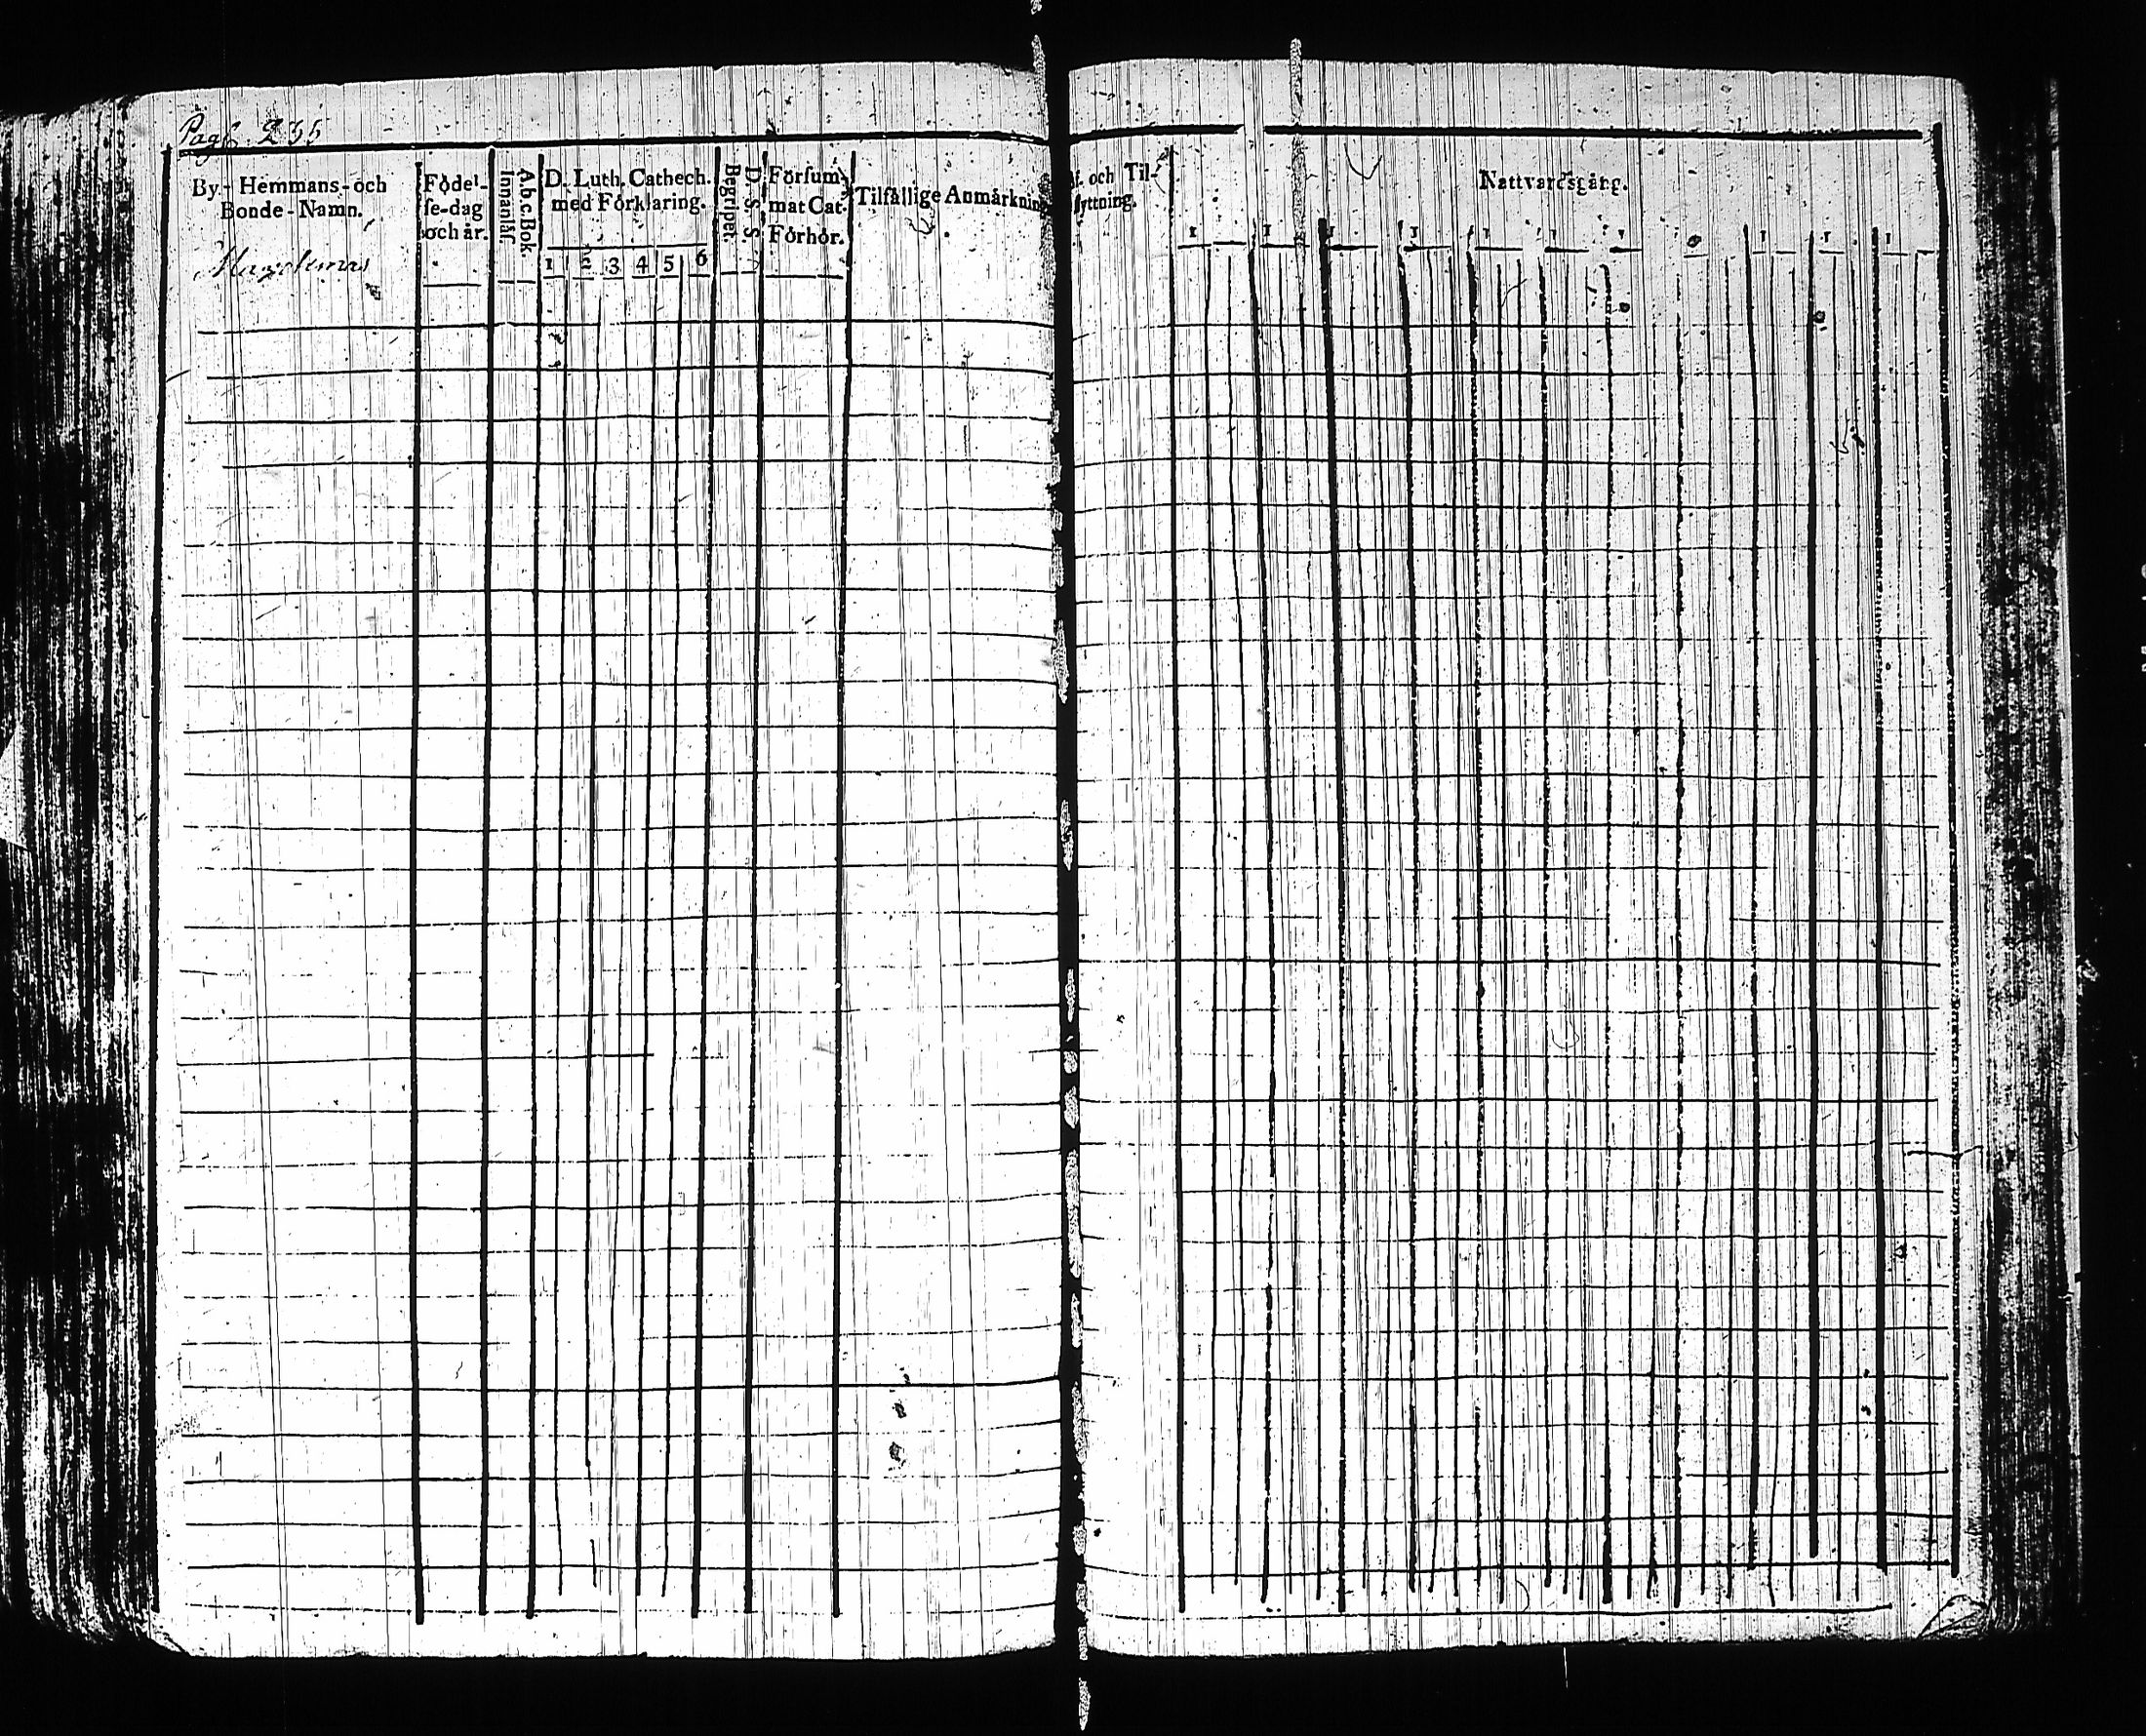 Pag. 235
By-Hemmans-och
Bonde-Namn.
Födel-
se-dag
och år.
A.b.c.Bok.
Innanläs.
D. Luth. Cathech.
med Förklaring.
1 2 3 4 5 6
D. S. S.
Begripet.
Försum-
mat Cat-
Förhör.
Tilfällige Anmärkning
f. och Til-
lyttning.
Nattvardsgång.
1 1 1 1 1 1 1 1 1 1